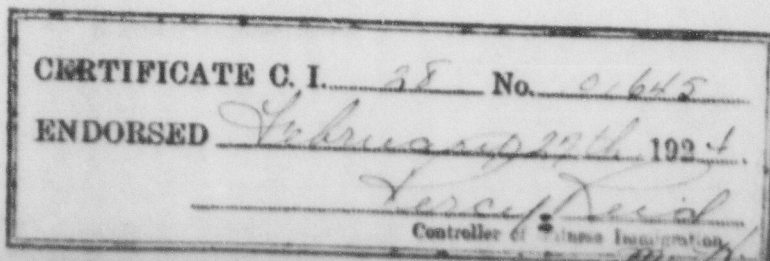 CERTIFICATE C. I. 28 No. 01645
ENDORSED February 27th 1924.
Percy Reid
Controller of Chinese Immigration